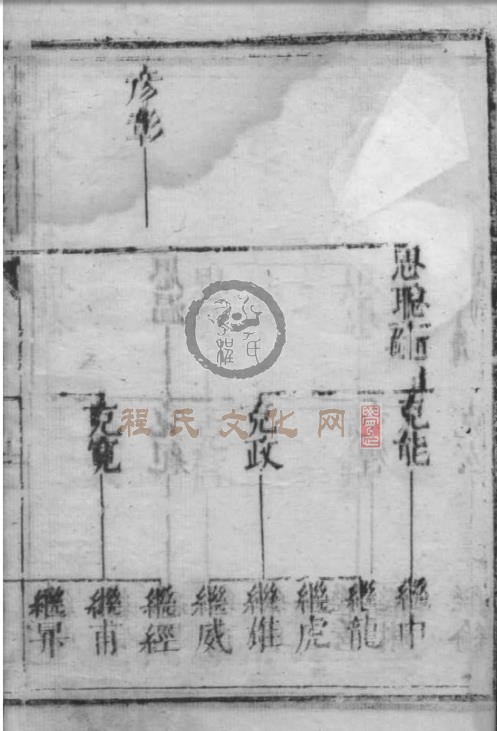 彦彰
思聰
克能
克政
克寬
繼
繼龍
繼虎
繼雄
繼威
繼經
繼甫
繼
程氏文化网